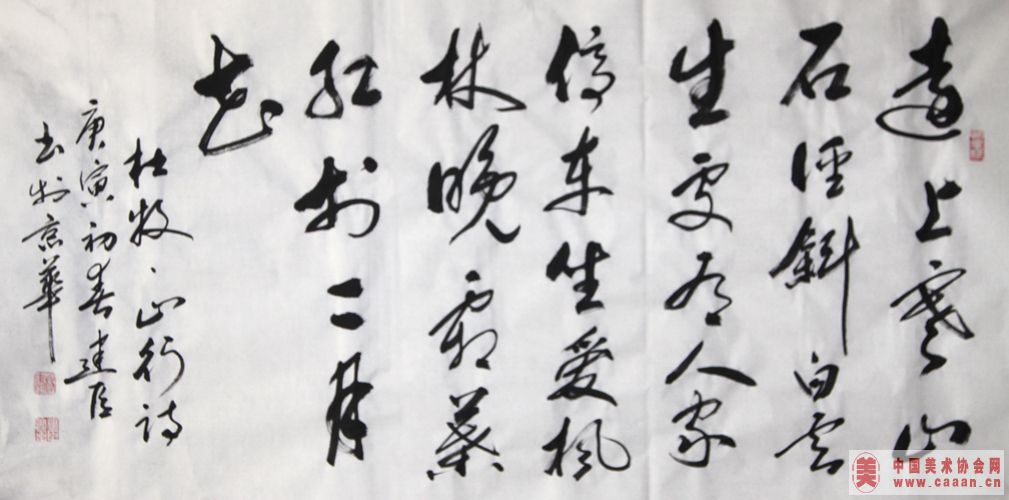 遠上寒山
石徑斜白雲
生處有人家
停車坐愛楓
林晚霜葉
紅於二月
花
杜牧山行诗
庚寅初春建
书於京華
美
中国美术协会网
www.caaan.cn